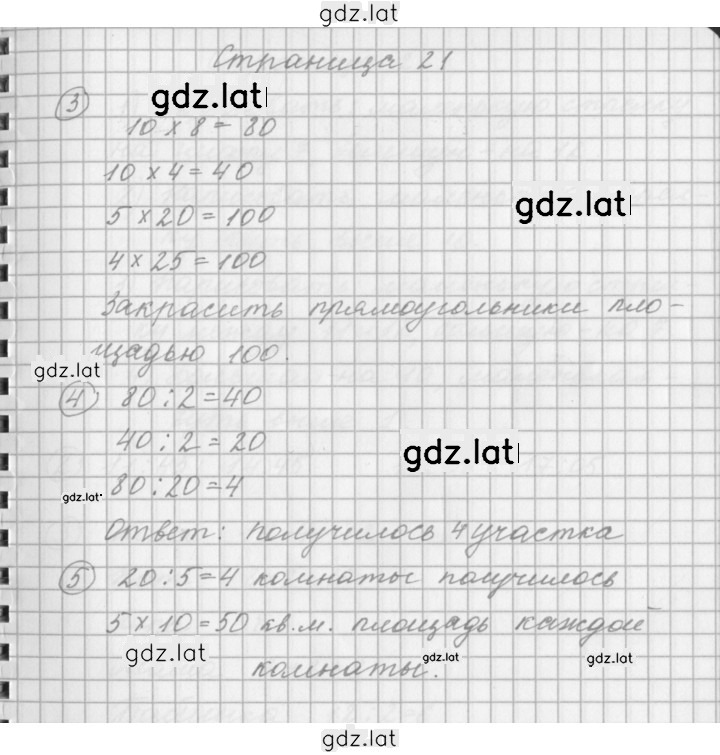 gdz.lat
Страница 21
gdz.lat
3
10 × 8 = 80
10 × 4 = 40
gdz.lat
5 × 20 = 100
4 × 25 = 100
Закрасить прямоугольники пло-
щадью 100.
gdz.lat
4 80 : 2 = 40
40 : 2 = 20
gdz.lat
80 : 20 = 4
gdz.lat
Ответ: получилось 4 участка
5 20 : 5 = 4 комнаты получилось
5 × 10 = 50 кв.м. площадь каждой
gdz.lat
комнаты.
gdz.lat
gdz.lat
gdz.lat